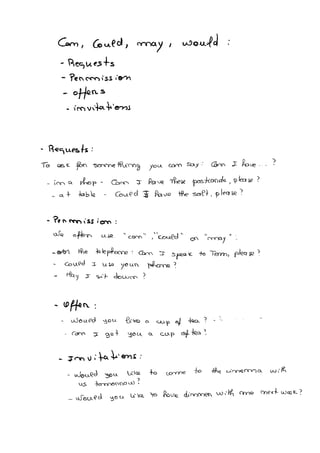 Can, Could, may, would :
- Requests
- Permission
- offers
- invitations
• Requests :
To ask for something you can say : Can I have ... ?
- in a shop - Can I have these postcards, please ?
- at table - Could I have the salt, please ?
- Permission :
We often use "can", "could" or "may".
- on the telephone : Can I speak to Tom, please ?
- Could I use your phone ?
- May I sit down ?
- Offer :
- Would you like a cup of tea ? -
- Can I get you a cup of tea ?
- Invitations :
- Would you like to come to the cinema with
us tomorrow ?
- Would you like to have dinner with me next week ?